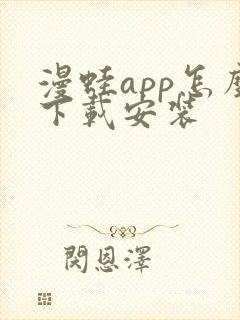 漫蛙app怎麼
下載安裝
閔恩澤